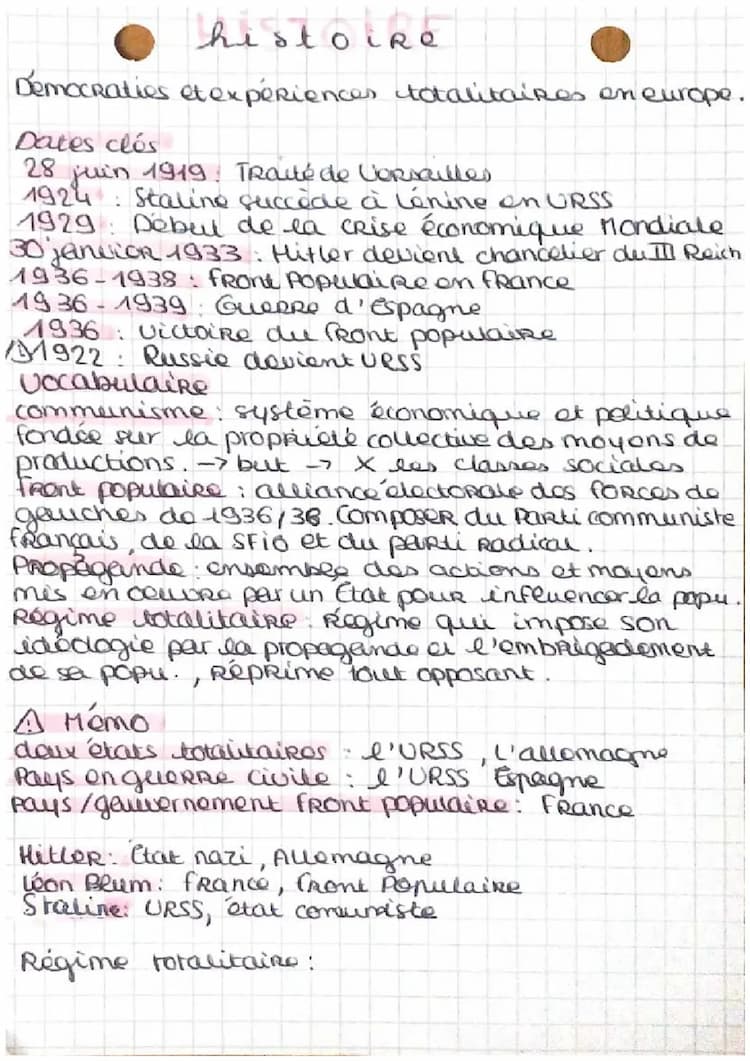 HISTOIRE
histoire
Démocraties et expériences totalitaires en europe.
Dates clés
28 juin 1919 : Traité de Versailles
1924 : Staline succède à Lénine en URSS
1929 : Début de la crise économique Mondiale
30 janvier 1933 : Hitler devient chancelier du III Reich
1936-1938 : front Populaire en france
1936-1939 : Guerre d'espagne
1936 : victoire du front populaire
⚠1922 : Russie devient URSS
Vocabulaire
communisme : système économique et politique
fondée sur la propriété collective des moyens de
productions. -> but -> X les classes sociales
front populaire : alliance électorale des forces de
gauches de 1936/38. Composer du Parti communiste
français, de la SFIO et du parti Radical.
Propagande : ensembles des actions et moyens
mis en oeuvre par un État pour influencer la popu.
Régime totalitaire : Régime qui impose son
idéologie par la propagande et l'embrigadement
de sa popu. , réprime tout opposant.
⚠ Mémo
deux états totalitaires : l'URSS, L'allemagne
Pays en guerre civile : l'URSS Espagne
pays/gouvernement front populaire : France
Hitler : État nazi, Allemagne
Léon Blum : france, front Populaire
Staline : URSS, état comuniste
Régime totalitaire :